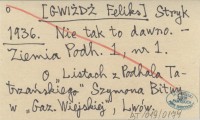 o [GWIŻDŻ Feliks] Stryk
1936. Nie tak to dawno. –
Ziemia Podh. 1, nr 1.
O „Listach z Podhala Ta-
trzańskiego" Szymona Bitwy
w „Gaz. Wiejskiej", Lwów.